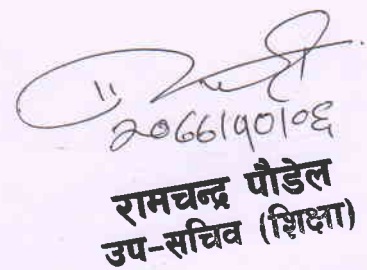 २०७७।१०।०६
रामचन्द्र पौडेल
उप-सचिव (शिक्षा)